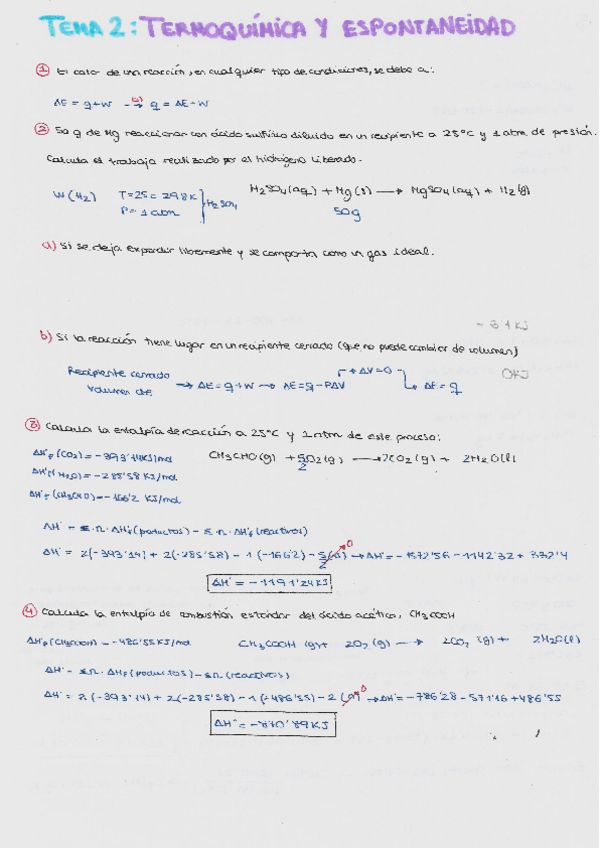 TEMA 2: TERMOQUÍMICA Y ESPONTANEIDAD
① El calor de una reacción, en cualquier tipo de condiciones, se debe a:
ΔE = q+W → q = ΔE - W
② 50 g de Mg reaccionar con ácido sulfúrico diluido en un recipiente a 25°C y 1 atm de presión.
Calcula el trabajo realizado por el hidrógeno liberado.
W(H₂) T=25=298K H₂SO₄ H₂SO₄(aq) + Mg(s) → MgSO₄(aq) + H₂(g)
P=1atm 50g
a) Si se deja expandir libremente y se comporta como un gas ideal.
- 5'1 KJ
b) Si la reacción tiene lugar en un recipiente cerrado (que no puede cambiar de volumen)
Recipiente cerrado → ΔV=0 0KJ
volumen cte → ΔE = q+W → ΔE = q-PΔV → ΔE = q
③ Calcula la entalpía de reacción a 25°C y 1 atm de este proceso:
ΔHºf(CO₂)=-393'14KJ/mol CH₃CHO(g) + 5/2 O₂(g) → 2CO₂(g) + 2H₂O(l)
ΔHºf(H₂O)=-285'58 KJ/mol
ΔHºf(CH₃CHO)=-166'2 KJ/mol
ΔHº = Σn·ΔHºf(productos) - Σn·ΔHºf(reactivos)
ΔHº = 2(-393'14) + 2(-285'58) - 1(-166'2) - 5/2(0) 0 → ΔHº =
ΔHº = -1191'24KJ
④ Calcula la entalpía de combustión estándar del ácido acético, CH₃COOH
ΔHºf(CH₃COOH)=-486'55KJ/mol CH₃COOH(g)+ 2O₂(g) → 2CO₂(g) + 2H₂O(l)
ΔHº = Σn·ΔHf(productos) - Σn(reactivos)
ΔHº = 2(-393'14) + 2(-285'58) - 1(-486'55) - 2(0) 0 → ΔHº = -786'28 - 571'16 + 486'55
ΔHº = -870'89KJ